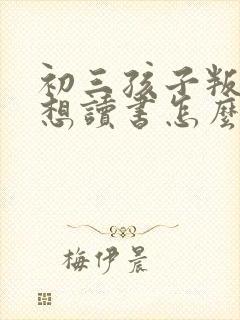 初三孩子叛
想讀書怎麼
梅伊晨